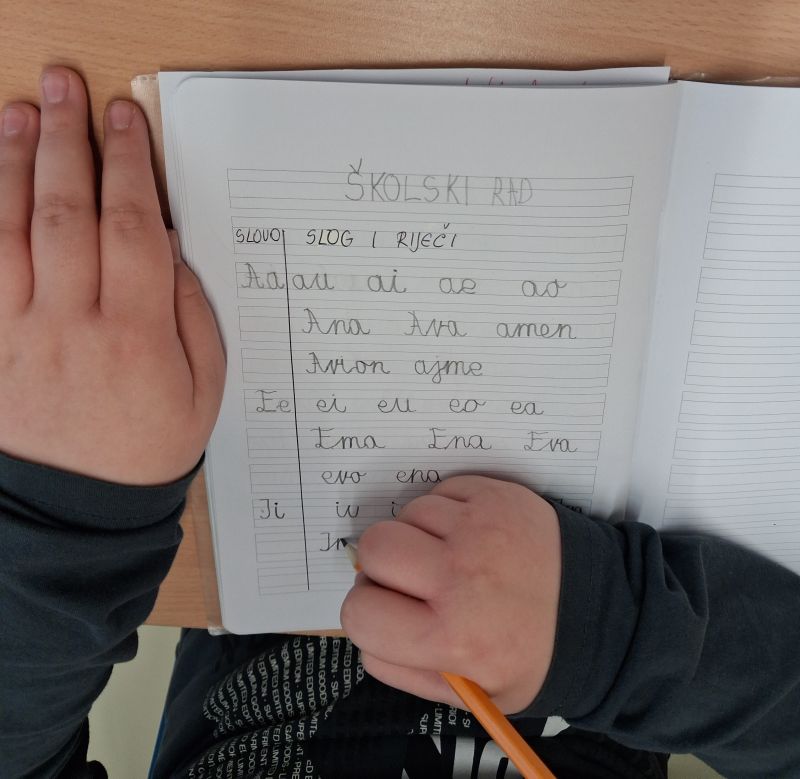 ŠKOLSKI RAD
SLOVO SLOG I RIJEČI
Aa au ai ae ao
Ana Ava amen
Avion ajme
Ee ei eu eo ea
Ema Ena Eva
evo ena
Ii iu
LIMITED EDITION
PREMIUM GOODS